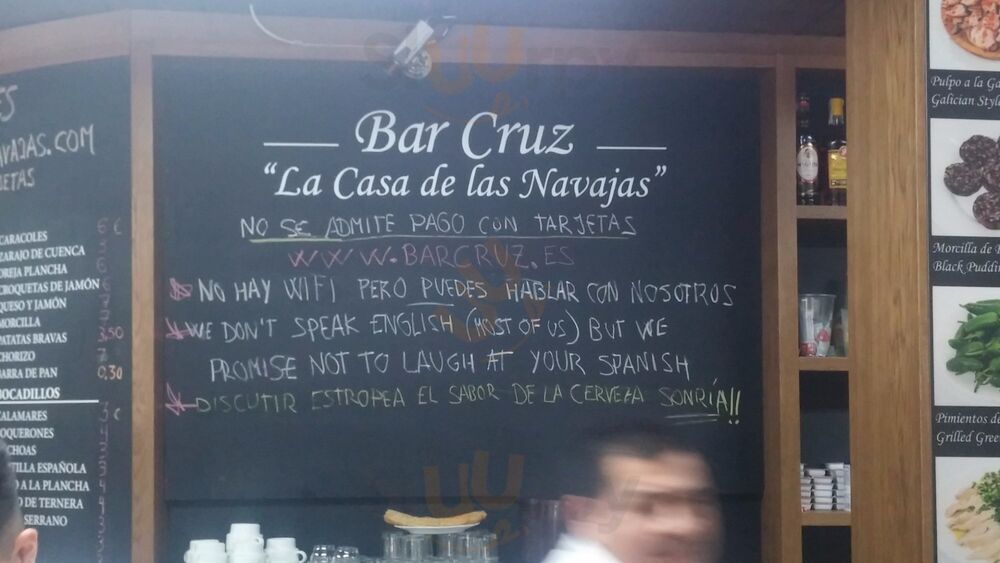 Bar Cruz
"La Casa de las Navajas"
NO SE ADMITE PAGO CON TARJETAS
WWW.BARCRUZ.ES
NO HAY WIFI PERO PUEDES HABLAR CON NOSOTROS
WE DON'T SPEAK ENGLISH (MOST OF US) BUT WE
PROMISE NOT TO LAUGH AT YOUR SPANISH
DISCUTIR ESTROPEA EL SABOR DE LA CERVEZA SONRÍA!!
.COM
CARACOLES 6 €
ZARAJO DE CUENCA
OREJA PLANCHA
CROQUETAS DE JAMÓN
QUESO Y JAMÓN
MORCILLA
PATATAS BRAVAS 3,50
CHORIZO
BARRA DE PAN 0,30
BOCADILLOS
CALAMARES
BOQUERONES
CHOAS
TILLA ESPAÑOLA
O A LA PLANCHA
O DE TERNERA
SERRANO
Pulpo a la Ga
Galician Style
Morcilla de
Black Puddi
Pimientos de
Grilled Gree